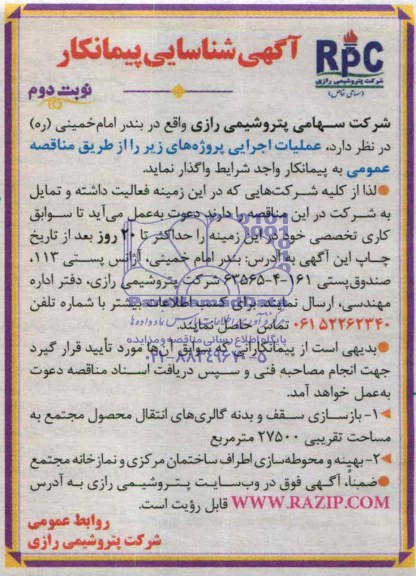 RPC
شرکت پتروشیمی رازی
(سهامی خاص)
آگهی شناسایی پیمانکار
نوبت دوم
شرکت سهامی پتروشیمی رازی واقع در بندر امام‌خمینی (ره)
در نظر دارد، عملیات اجرایی پروژه‌های زیر را از طریق مناقصه
عمومی به پیمانکار واجد شرایط واگذار نماید.
●لذا از کلیه شرکت‌هایی که در این زمینه فعالیت داشته و تمایل
به شرکت در این مناقصه را دارند دعوت به‌عمل می‌آید تا سوابق
کاری تخصصی خود در این زمینه را حداکثر تا ۲۰ روز بعد از تاریخ
چاپ این آگهی به آدرس: بندر امام خمینی، آژانس پستی ۱۱۳،
صندوق‌پستی ۱۶۱-۴-۶۳۵۶۵ شرکت پتروشیمی رازی، دفتر اداره
مهندسی، ارسال نمایند. برای کسب اطلاعات بیشتر با شماره تلفن
۰۶۱۵۲۲۶۲۳۴۰ تماس حاصل نمایند.
پایگاه اطلاع رسانی مناقصه و مزایده
●بدیهی است از پیمانکارانی که سوابق آن‌ها مورد تأیید قرار گیرد
۰۲۱-۸۸۳۴۹۶۷۰-۵
جهت انجام مصاحبه فنی و سپس دریافت اسناد مناقصه دعوت
به‌عمل خواهد آمد.
۱- بازسازی سقف و بدنه گالری‌های انتقال محصول مجتمع به
مساحت تقریبی ۲۷۵۰۰ مترمربع
۲- بهینه و محوطه‌سازی اطراف ساختمان مرکزی و نمازخانه مجتمع
●ضمناً، آگهی فوق در وب‌سایت پتروشیمی رازی به آدرس
WWW.RAZIP.COM قابل رؤیت است.
روابط عمومی
شرکت پتروشیمی رازی